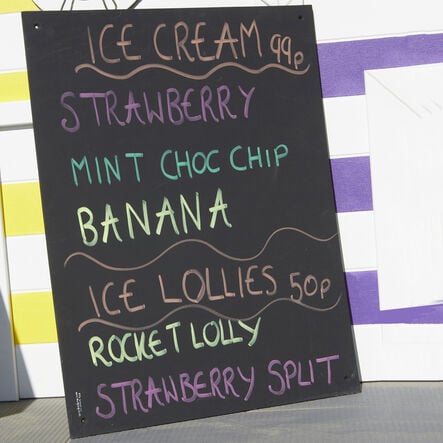 ICE CREAM 99p
STRAWBERRY
MINT CHOC CHIP
BANANA
ICE LOLLIES 50p
ROCKET LOLLY
STRAWBERRY SPLIT